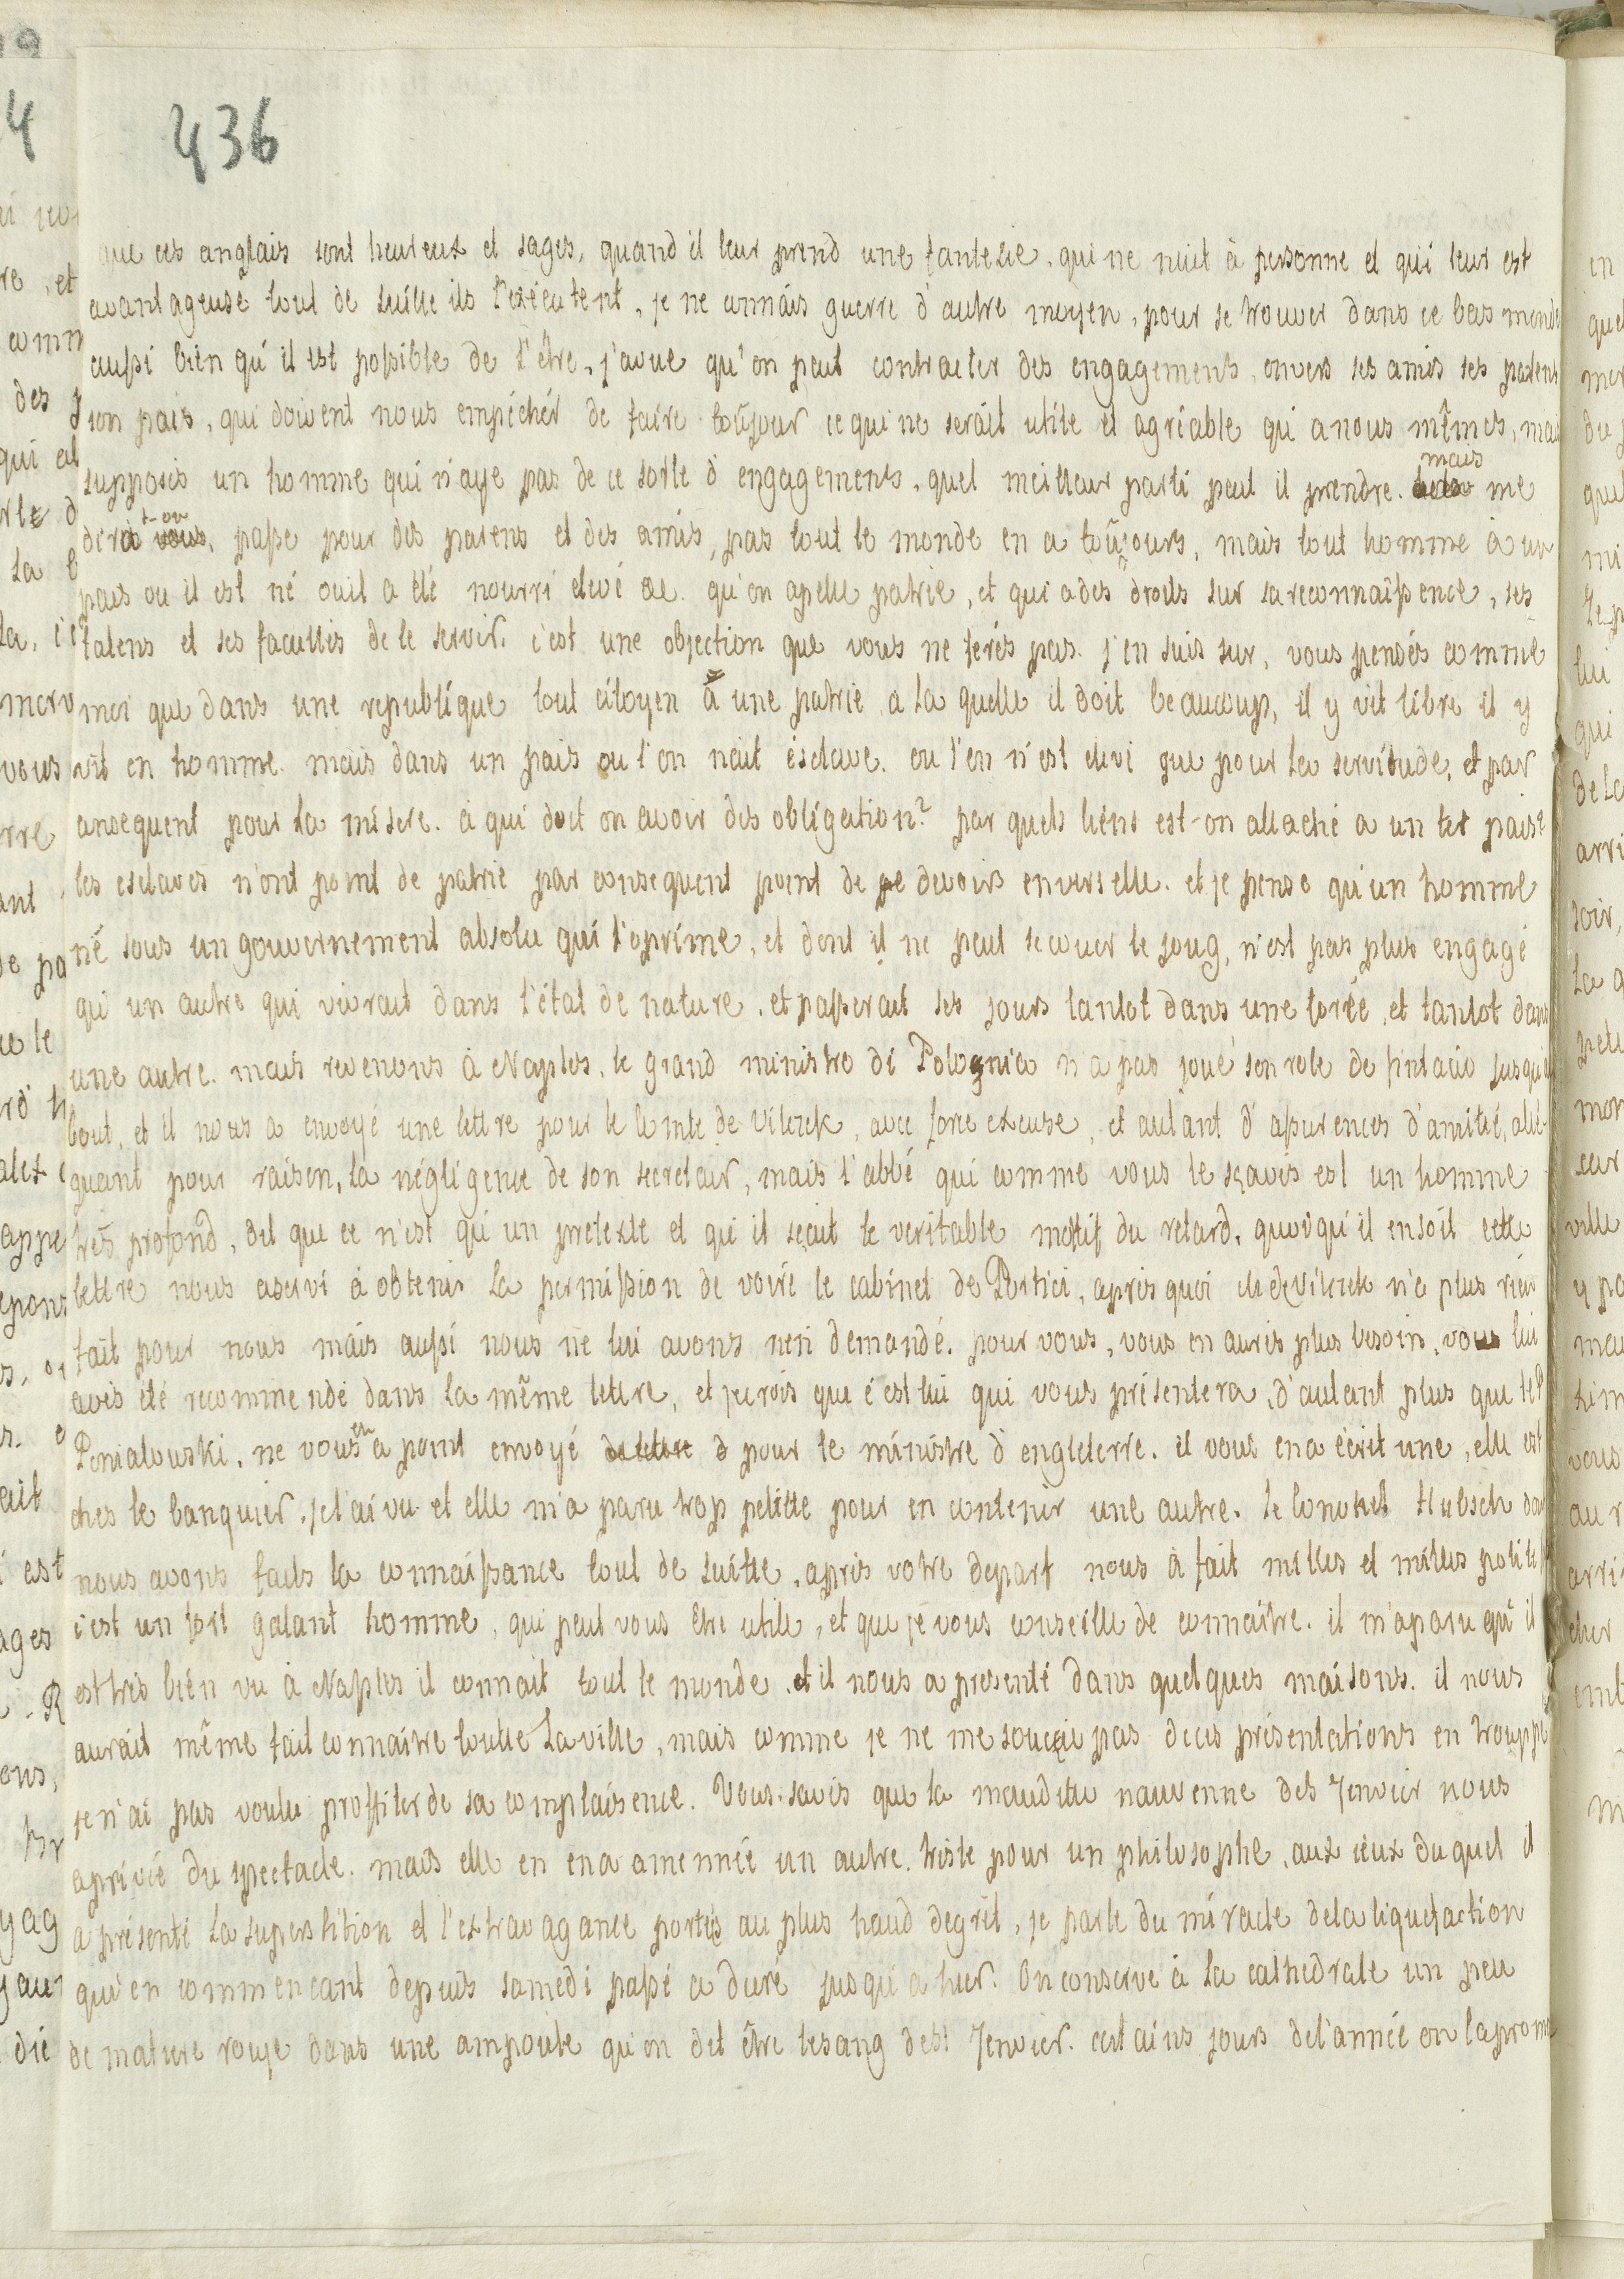 436
que ces anglais sont heureux et sages, quand il leur prend une fantesie, qui ne nuit à personne et qui leur est
avantageuse tout de suitte ils l'exécutent, je ne connais guerre d'autre moyen, pour se trouver dans ce bas monde
aussi bien qu'il est possible de l'être, j'avue qu'on peut contracter des engagements, envers ses amis ses parens
son pais, qui doivent nous empéchér de faire toûjour ce qui ne serait utile et agréable qu'a nous mêmes, mais
supposés un homme qui n'aye pas de ce sorte d'engagements, quel meilleur parti peut il prendre. mais me
dira t-on, passe pour des parens et des amis, pas tout le monde en a toûjours, mais tout homme à un
pais ou il est né ou il a été nourri elevé &c. qu'on apelle patrie, et qui a des droits sur sa reconnaissence, ses
talens et ses facultés de le servir. c'est une objection que vous ne ferés pas. j'en suis sur, vous pensés comme
moi que dans une republique tout citoyen a une patrie a la quelle il doit beaucoup, il y vit libre il y
vit en homme. mais dans un pais ou l'on nait ésclave. ou l'on n'est elevé que pour la servitude, et par
consequent pour la misere. à qui doit on avoir des obligation? par quels liéns est-on attaché a un tel pais?
les esclaves n'ont point de patrie par consequent point de devoirs envers elle. et je pense qu'un homme
né sous un gouvernement absolu qui l'oprime, et dont il ne peut secouer le joug, n'est pas plus engagé
qu'un autre qui vivrait dans l'état de nature, et passerait ses jours tantot dans une forée, et tantot dans
une autre. mais revenons à Naples, le grand ministre di Polognia n'a pas joué son role de jusqu'a
bout, et il nous a envoyé une lettre pour le Comte de Vilczek, avec force excuse, et autant d'assurences d'amitié, allé-
guant pour raison, la négligence de son secretair, mais l'abbé qui comme vous le sçavés est un homme
très profond, dit que ce n'est qu'un pretexte et qu'il sçait le veritable mottif du retard, quoiqu'il en soit cette
lettre nous a servi à obtenir la permission de voire le cabinet de Portici, aprés quoi Mr de Vilczek n'a plus rién
fait pour nous mais aussi nous ne lui avons rien demandé. pour vous, vous en aurés plus besoin, vous lui
avés été recommendé dans la même lettre, et je crois que c'est lui qui vous présentera, d'autant plus que le P
Poniatowski, ne vous en a point envoyé pour le ministre d'engleterre. il vous en a écrit une, elle est
chés le banquier, je l'ai vu et elle m'a paru trop petitte pour en contenir une autre. le Hubsch dont
nous avons faits la connaissance tout de suitte, aprés votre depart nous à fait milles et milles
c'est un fort galant homme, qui peut vous être utille, et que je vous conseille de connaitre. il m'a paru qu'il
est trés bién vu à Naples il connait tout le monde. et il nous a presenté dans quelques maisons. il nous
aurait même fait connaitre toutte la ville, mais comme je ne me soucie pas de ces présentations en trouppe
je n'ai pas voulu proffiter de sa complaisence. Vous savés que la mauditte nauvenne de St Jenvier nous
a privé du spectacle. mais elle en en a amennée un autre, triste pour un philosophe, aux ieux du quel il
a présenté la superstition et l'extravagance portés au plus haud degrét, je parle du miracle de la liquefaction
qui en commencant depuis samedi passé a duré jusqu'a hier. On conserve à la cathedrale un peu
de matiere rouje dans une ampoule qu'on dit être le sang de St Jenvier. certains jours de l'année on la prome